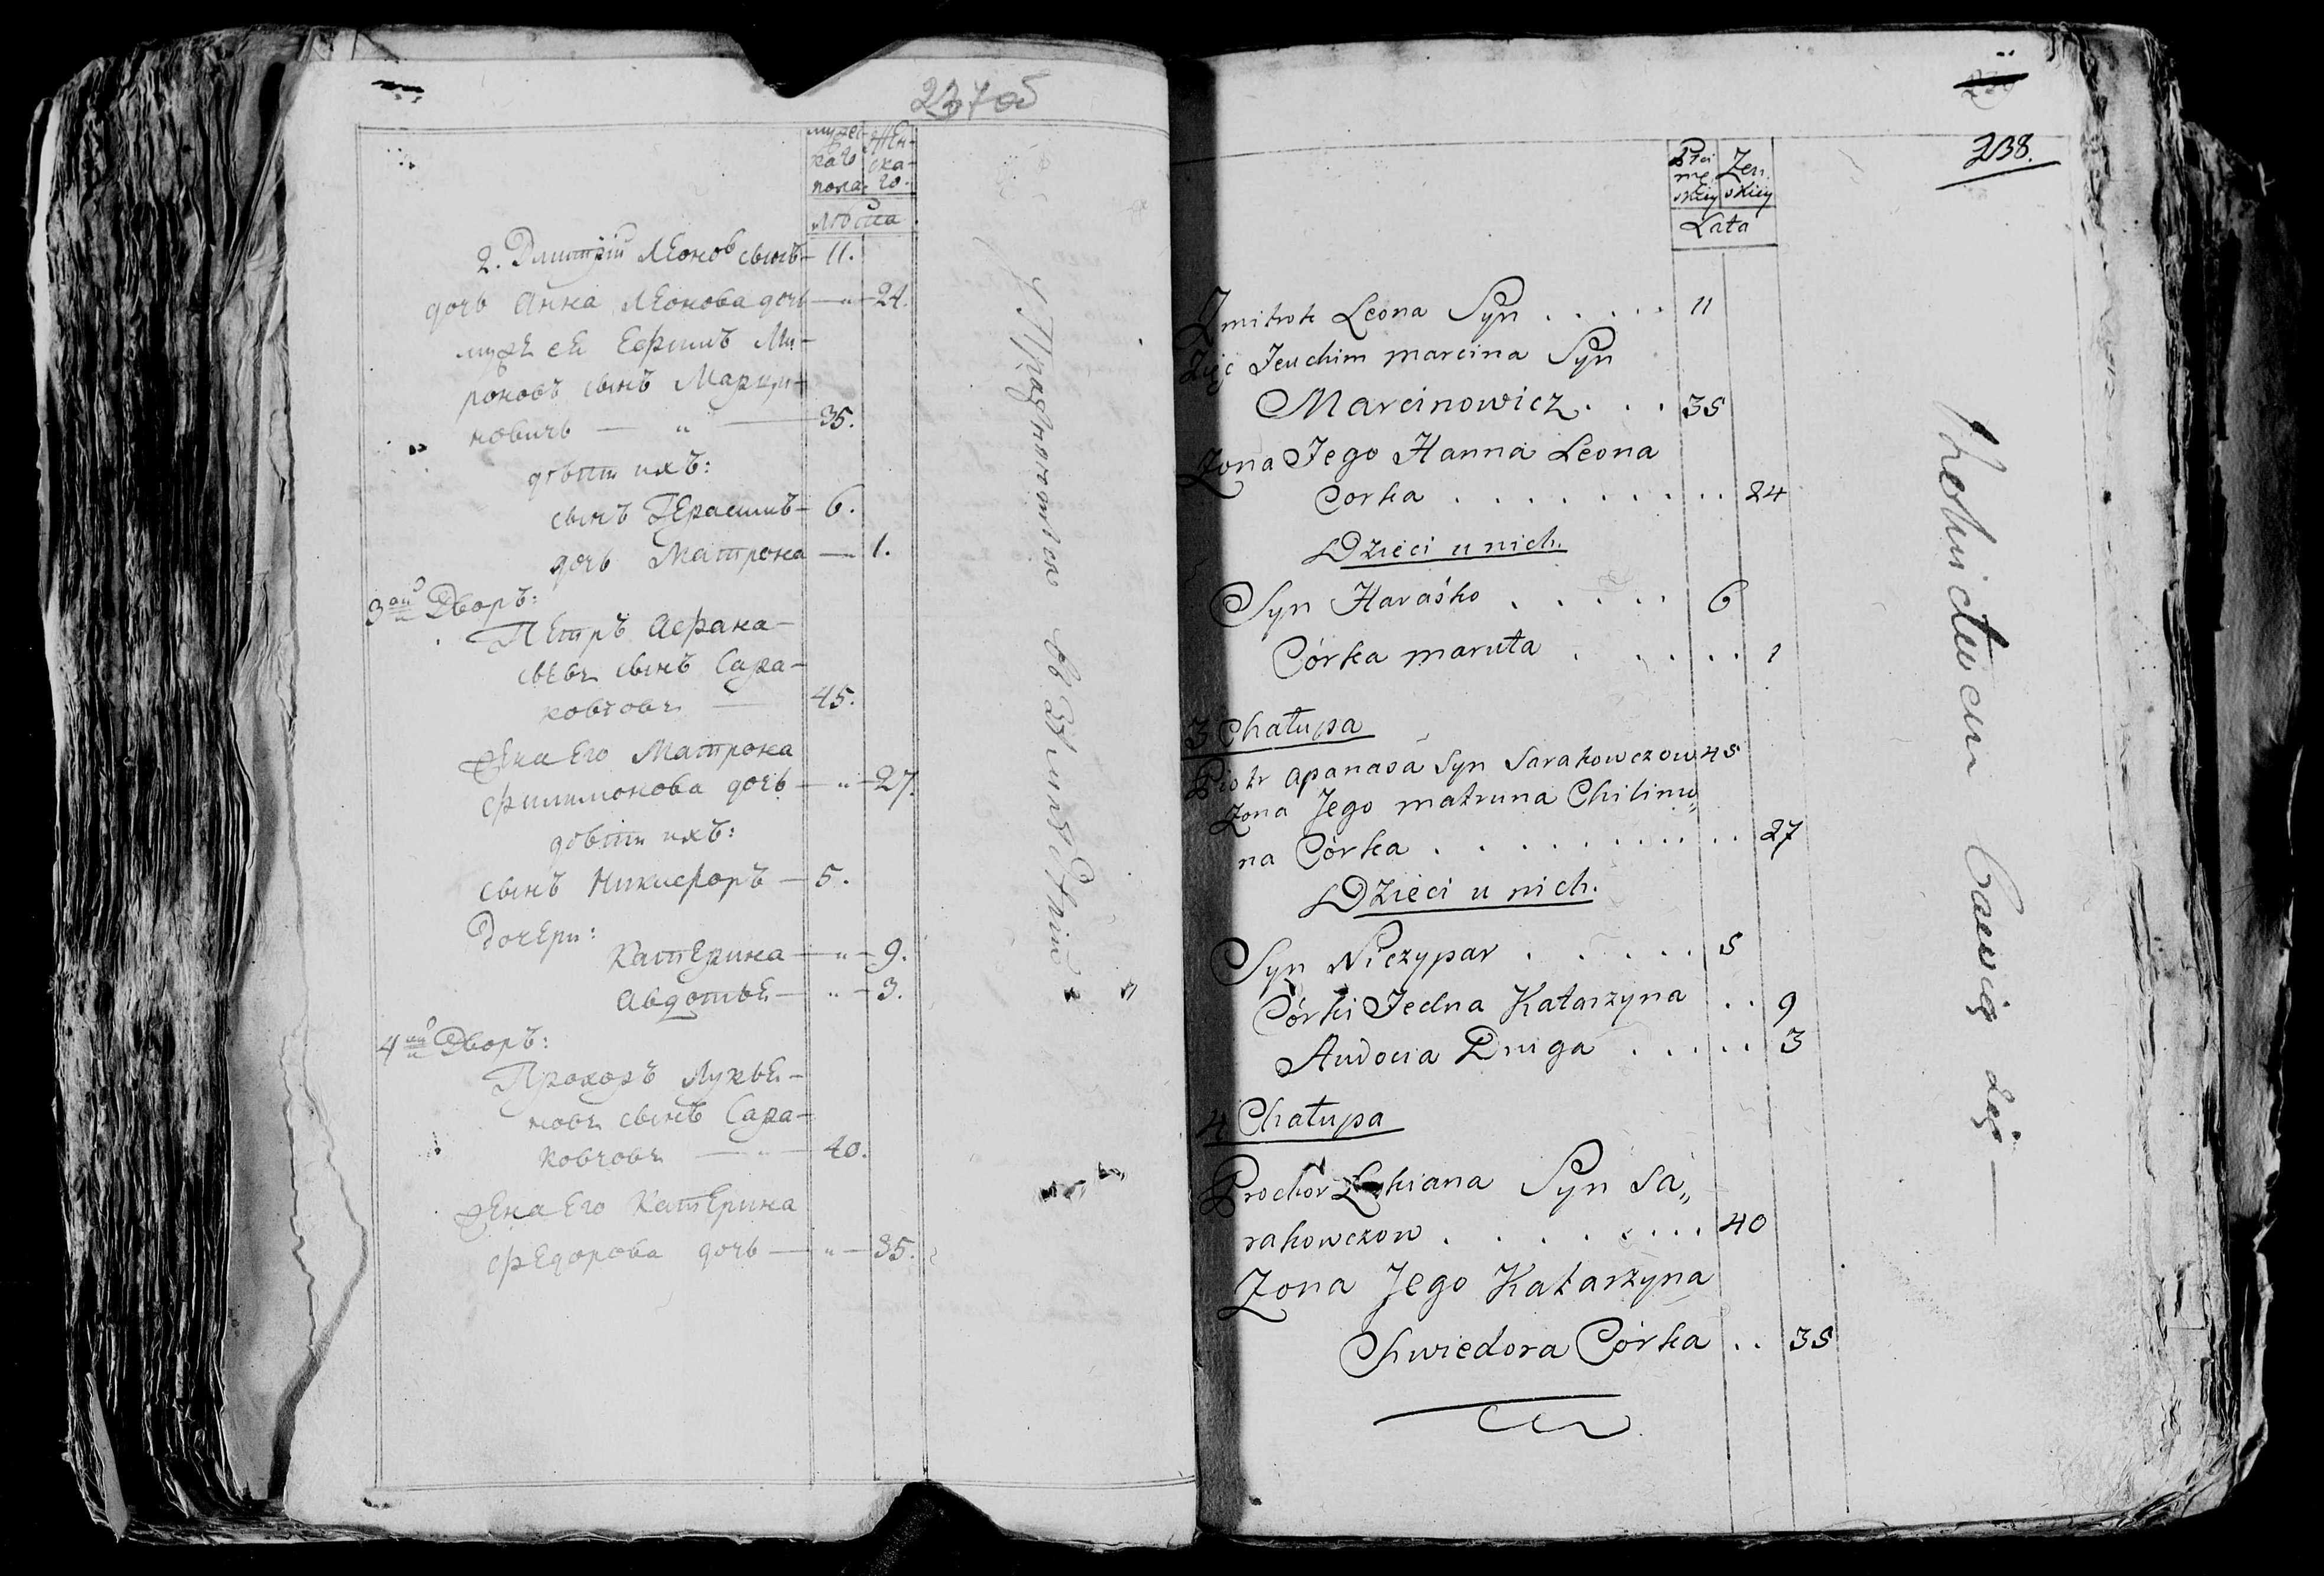 237об
мужес- жен-
каго ска-
пола. го.
лѣта
2. Дмитрій Леонов сынъ — 11.
дочь Анна Леонова дочь — " — 24.
мужъ ея Ефимъ Ми-
роновъ сынъ Марци-
новичъ — " — 35.
дѣти ихъ:
сынъ Герасимъ — 6.
дочь Матрона — 1.
3ой Дворъ:
Петръ Афана-
сьевъ сынъ Сара-
ковчовъ — 45.
жена Его Матрона
Филимонова дочь — " — 27.
дѣти ихъ:
сынъ Никифоръ — 5.
дочери:
Катерина — " — 9.
Авдотья — " — 3.
4ый Дворъ:
Прохоръ Лукья-
новъ сынъ Сара-
ковчовъ — " — 40.
жена Его Катерина
Федорова дочь — " — 35.
238.
Zen.
skiey skiey
Lata
Zmitrok Leona Syn . . . . . 11
Zięć Jeuchim marcina Syn
Marcinowicz . . . 35
Zona Jego Hanna Leona
Corka . . . . . . . . . . 24
Dzieci u nich.
Syn Haraśko . . . . . 6
Córka maruta . . . . . . 1
3 Chałupa
Piotr apanasa Syn Sarakowczow 45
Zona Jego matruna Chilimo„
na Córka . . . . . . . . . . . 27
Dzieci u nich.
Syn Niczypar . . . . . 5
Córki Jedna Katarzyna . . 9
Audocia Druga . . . . . 3
4 Chałupa
Prochor Lukiana Syn Sa„
rakowczow . . . . . . . . 40
Zona Jego Katarzyna
Chwiedora Córka . . 35